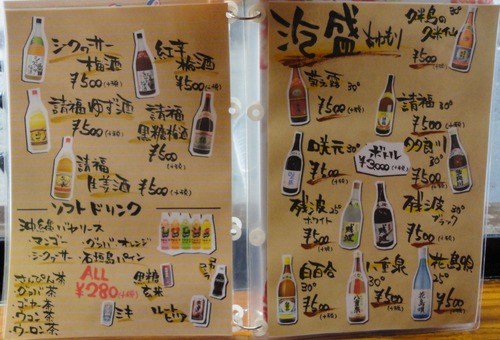 シークヮーサー
梅酒
¥500(+税)
紅芋
梅酒
¥500(+税)
請福ゆず酒
¥500(+税)
請福
黒糖梅酒
¥500(+税)
請福
生姜酒
¥500(+税)
ソフトドリンク
沖縄バヤリース
・マンゴー
・グァバ・オレンジ
・シークヮサー
・石垣島パイン
さんぴん茶
・グァバ茶
・ゴーヤー茶
・ウコン茶
・ウーロン茶
ALL
¥280(+税)
黒糖
玄米
ミキ
ルートビア
泡盛
あわもり
久米島の
久米仙
30°
¥500(+税)
菊之露
30°
¥500(+税)
請福
30°
¥500(+税)
咲元
30°
¥500(+税)
ボトル
¥3000(+税)
多良川
30°
¥500(+税)
残波
25°
ホワイト
¥500(+税)
残波
30°
ブラック
¥500(+税)
白百合
30°
¥500(+税)
八重泉
30°
¥500(+税)
花島物
25°
¥500(+税)